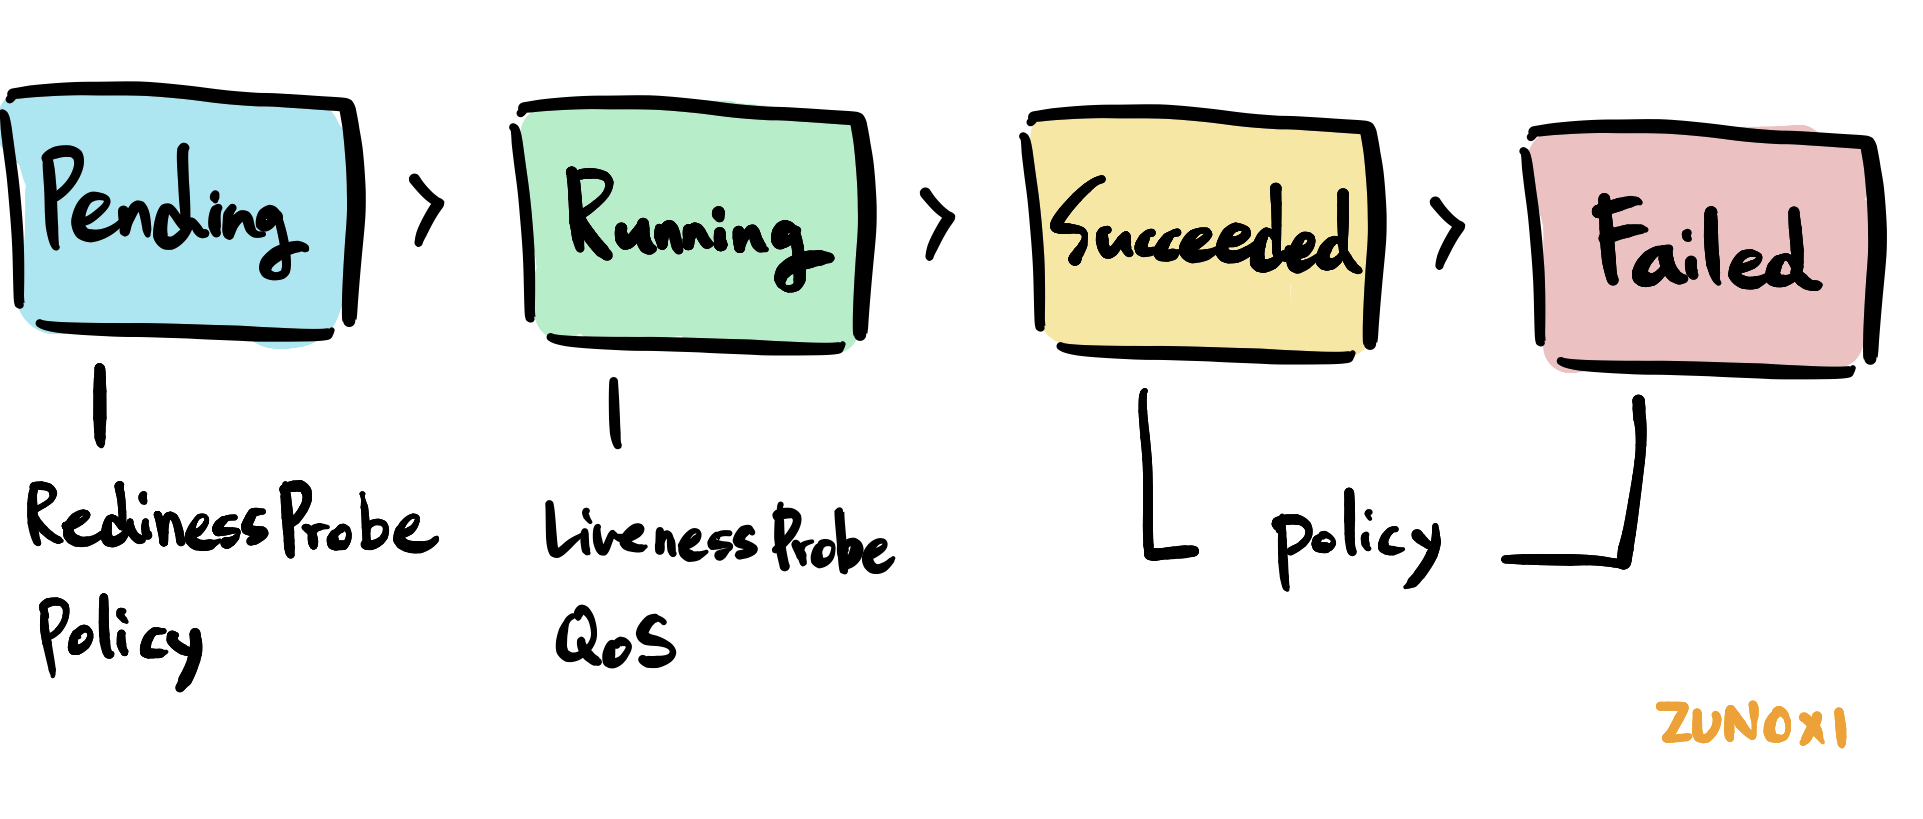 Pending > Running > Succeeded > Failed
RedinessProbe
Policy
LivenessProbe
QoS
policy
ZUNOXI